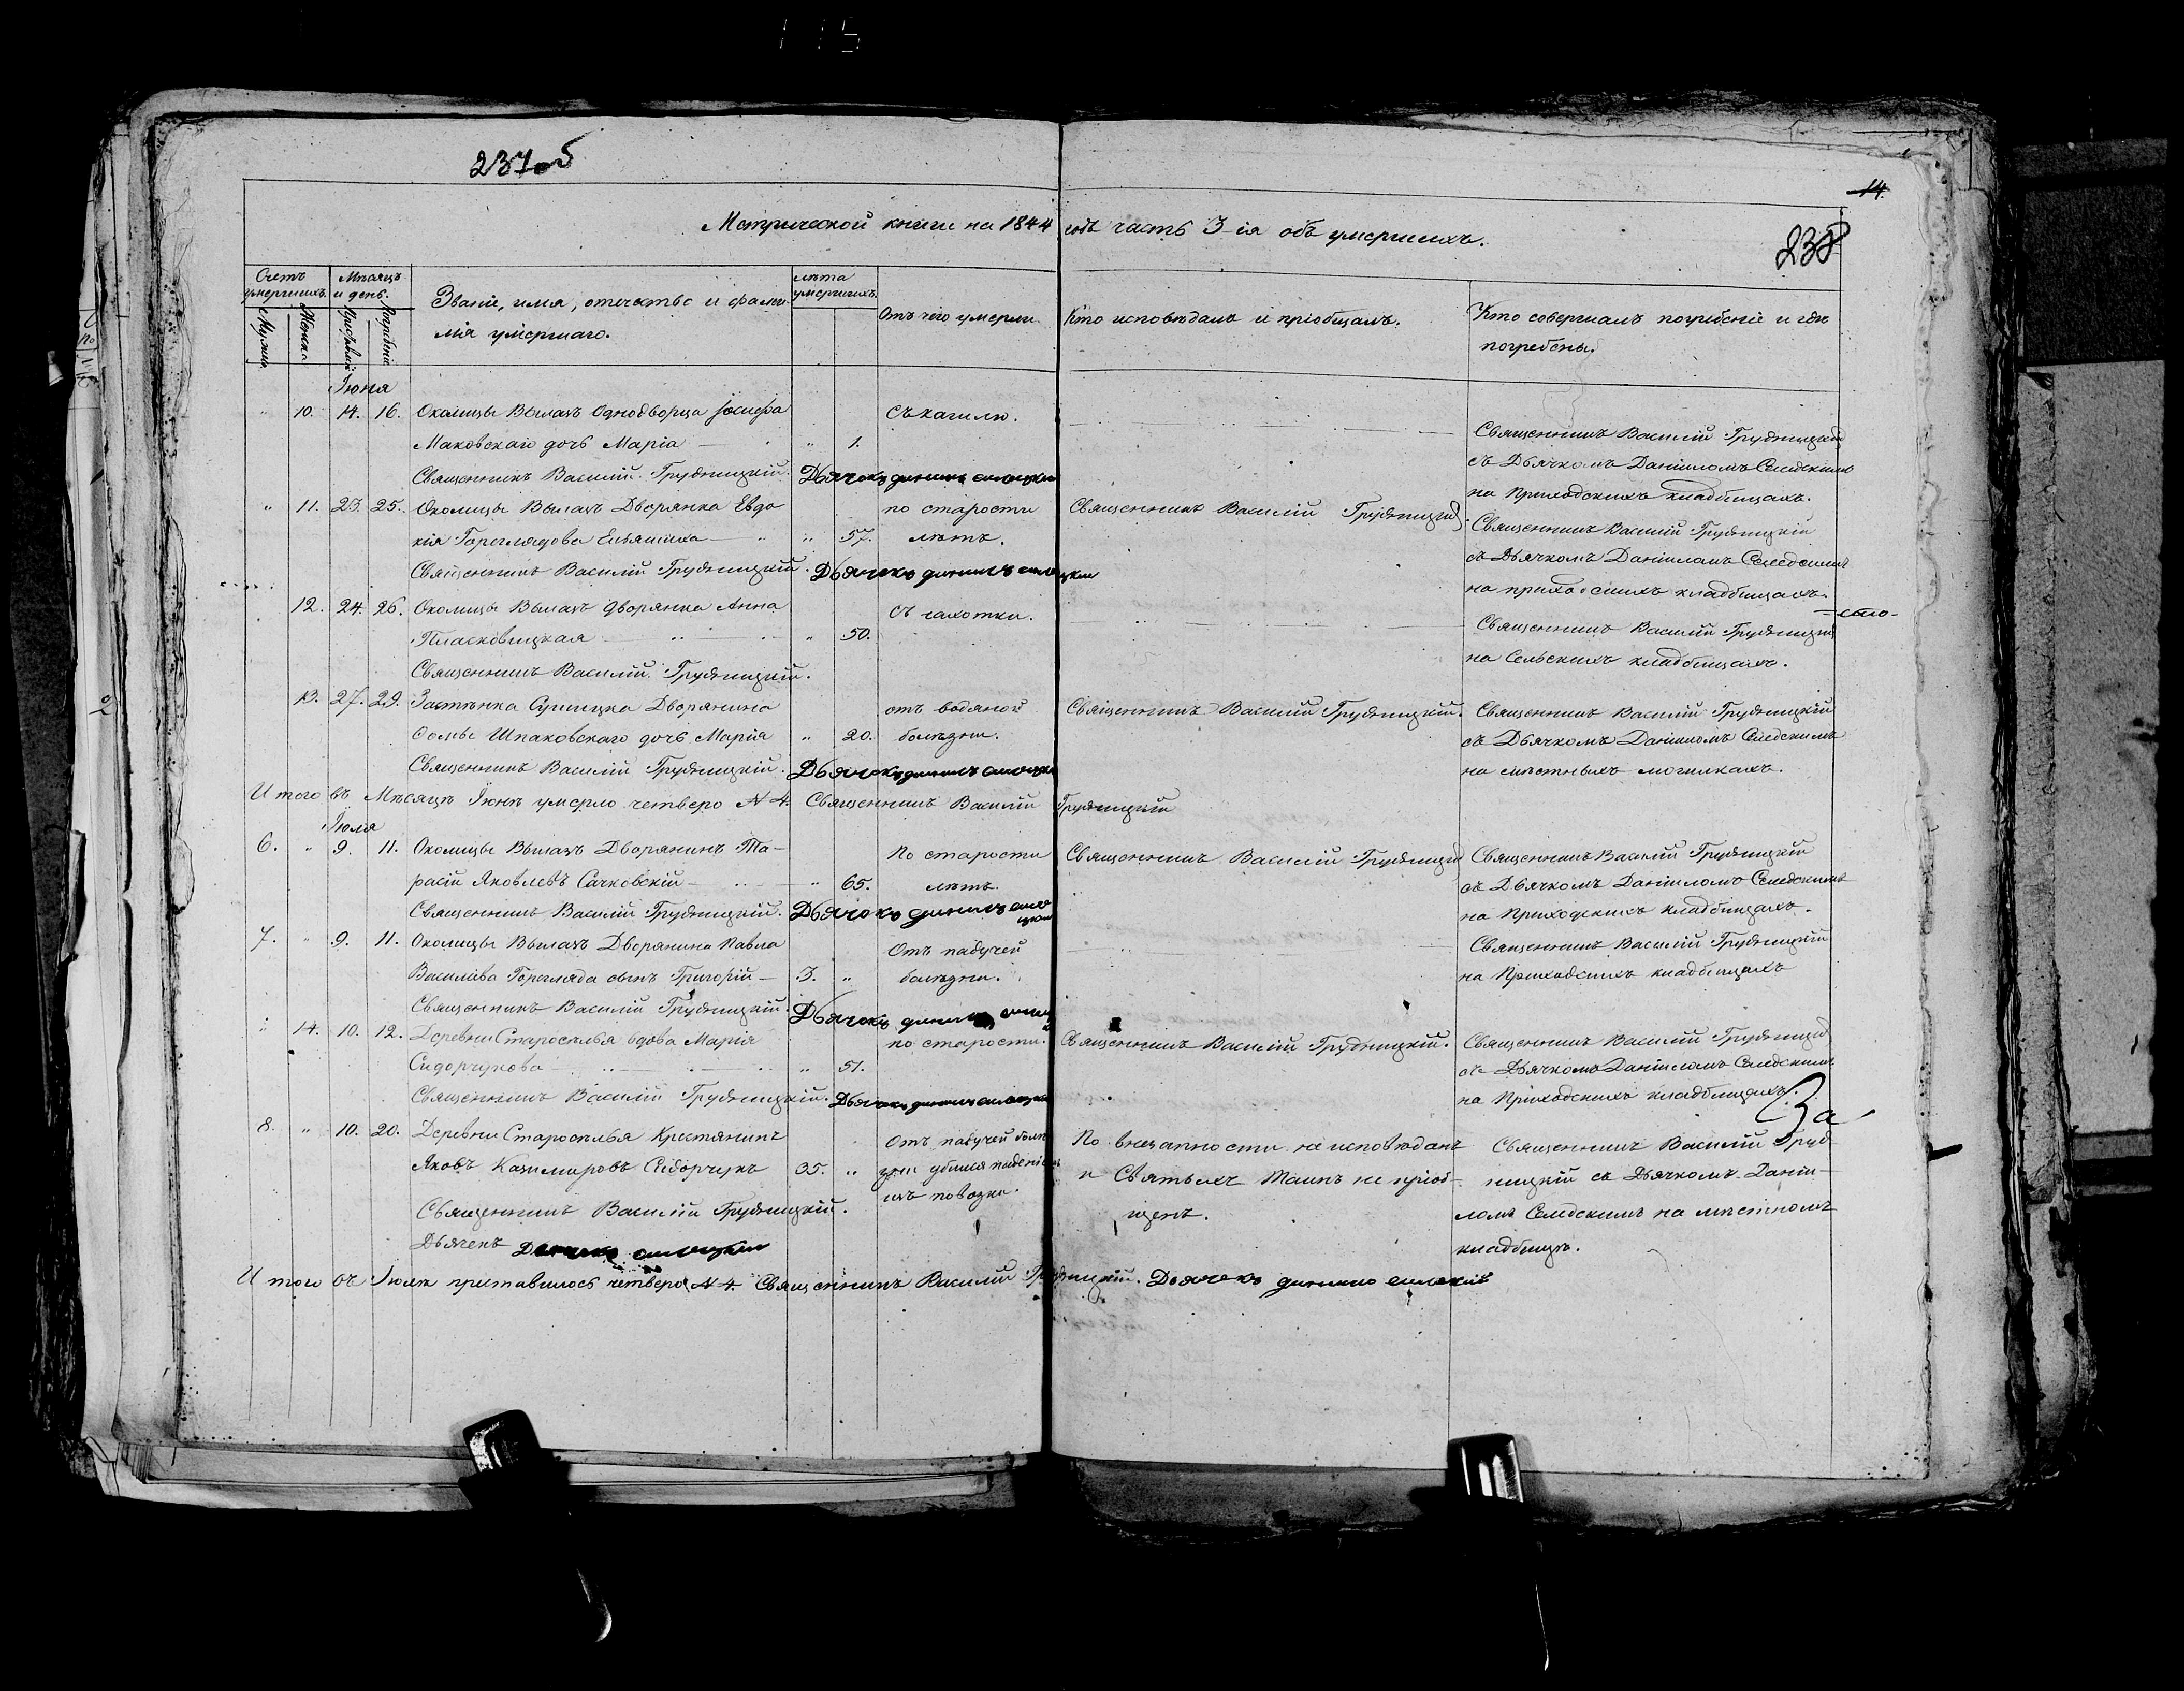 237об
14.
Метрической книги на 1844 годъ часть 3-ія объ умершихъ.
238
Счетъ умершихъ.
Мужска
Женска
Мѣсяцъ и день.
Погребенія
Званіе, имя, отчество и фамилія умершаго.
лѣта умершихъ.
Отъ чего умерли
Кто исповѣдалъ и пріобщалъ.
Кто совершалъ погребеніе и гдѣ погребены.
Іюня
" 10. 14. 16. Околицы Вылазъ Однодворца Іосифа съ кашлю.
Маковскаго дочь Марія " 1. Священникъ Василій Грудницкій
Священникъ Василій Грудницкій. Дьячокъ съ Дьячкомъ Даніиломъ
на Приходскихъ кладбищахъ.
" 11. 23. 25. Околицы Вылазъ Дворянка Евдо по старости Священникъ Василій Грудницкій
кія Гореглядова " 57. лѣтъ. Священникъ Василій Грудницкій
Священникъ Василій Грудницкій. Дьячокъ съ Дьячкомъ Даніиломъ
на приходскихъ кладбищахъ.
12. 24. 26. Околицы Вылазъ дворянка Анна съ чахотки.
Пласковицкая " 50. Священникъ Василій Грудницкій
Священникъ Василій Грудницкій. на Сельскихъ кладбищахъ.
13. 27. 29. Застѣнка Дворянина отъ водяной Священникъ Василій Грудницкій. Священникъ Василій Грудницкій
Ѳомы Шпаковскаго дочь Марія " 20. болѣзни. съ Дьячкомъ Даніиломъ
Священникъ Василій Грудницкій. Дьячокъ на мѣстныхъ могилкахъ.
Итого въ Мѣсяцѣ Іюнѣ умерло четверо № 4. Священникъ Василій Грудницкій
Іюля
6. " 9. 11. Околицы Вылазъ Дворянинъ Та- По старости Священникъ Василій Грудницкій Священникъ Василій Грудницкій
расій Яковлевъ Сачковскій " 65. лѣтъ. съ Дьячкомъ Даніиломъ
Священникъ Василій Грудницкій. Дьячокъ на Приходскихъ кладбищахъ.
7. " 9. 11. Околицы Вылазъ Дворянина Павла Отъ падучей Священникъ Василій Грудницкій
Васильева Горегляда сынъ Григорій 3. " болѣзни. на Приходскихъ кладбищахъ
Священникъ Василій Грудницкій. Дьячокъ
" 14. 10. 12. Деревни Староселья вдова Марія по старости. Священникъ Василій Грудницкій. Священникъ Василій Грудницкій
Сидорчукова " 51. съ Дьячкомъ Даніиломъ
Священникъ Василій Грудницкій. Дьячокъ на Приходскихъ кладбищахъ.
За
8. " 10. 20. Деревни Староселья Крестянинъ Отъ падучей болѣ По внезапности не исповѣданъ Священникъ Василій Груд-
Яковъ Казимировъ Сидорчукъ 35. " зни убился паденіемъ и Святыхъ Таинъ не пріоб- ницкій съ Дьячкомъ Даніи-
Священникъ Василій Грудницкій. изъ повозки. щенъ. ломъ на мѣстномъ
Дьячекъ кладбищѣ.
Итого въ Іюлѣ преставилось четверо № 4. Священникъ Василій Грудницкій. Дьячокъ